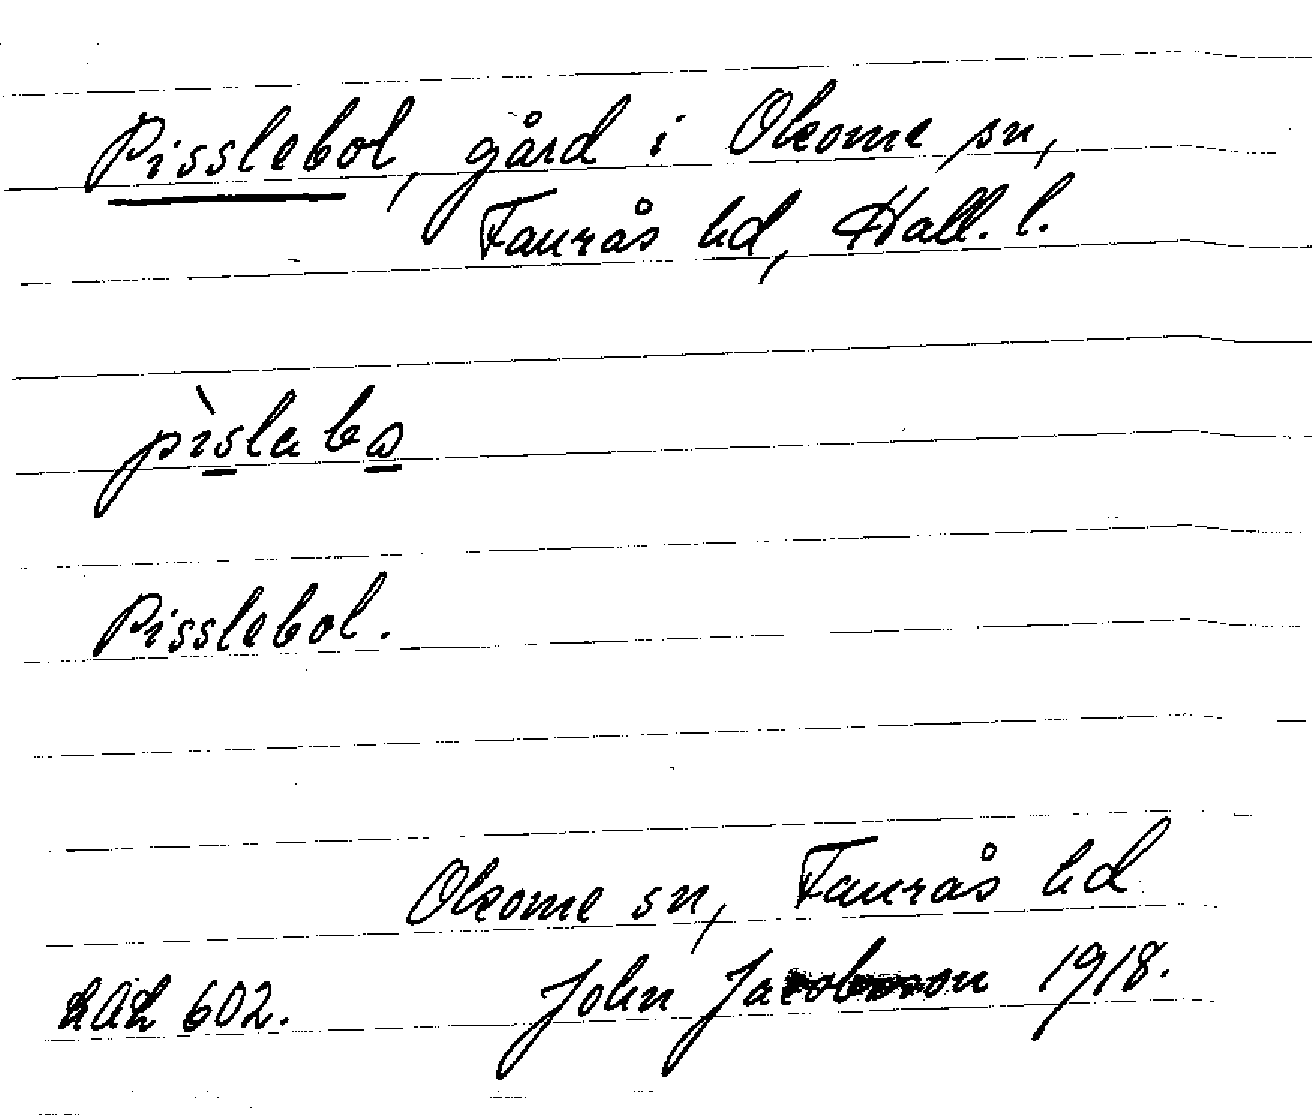 Pisslebol, gård i Okome sn,
Faurås hd, Hall. l.
pìslabɷ
Pisslebol.
Okome sn, Faurås hd
LAL 602. John Jacobsson 1918.